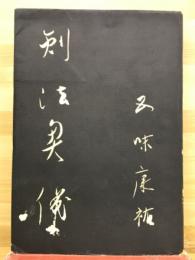 剣法奥儀
五味康祐